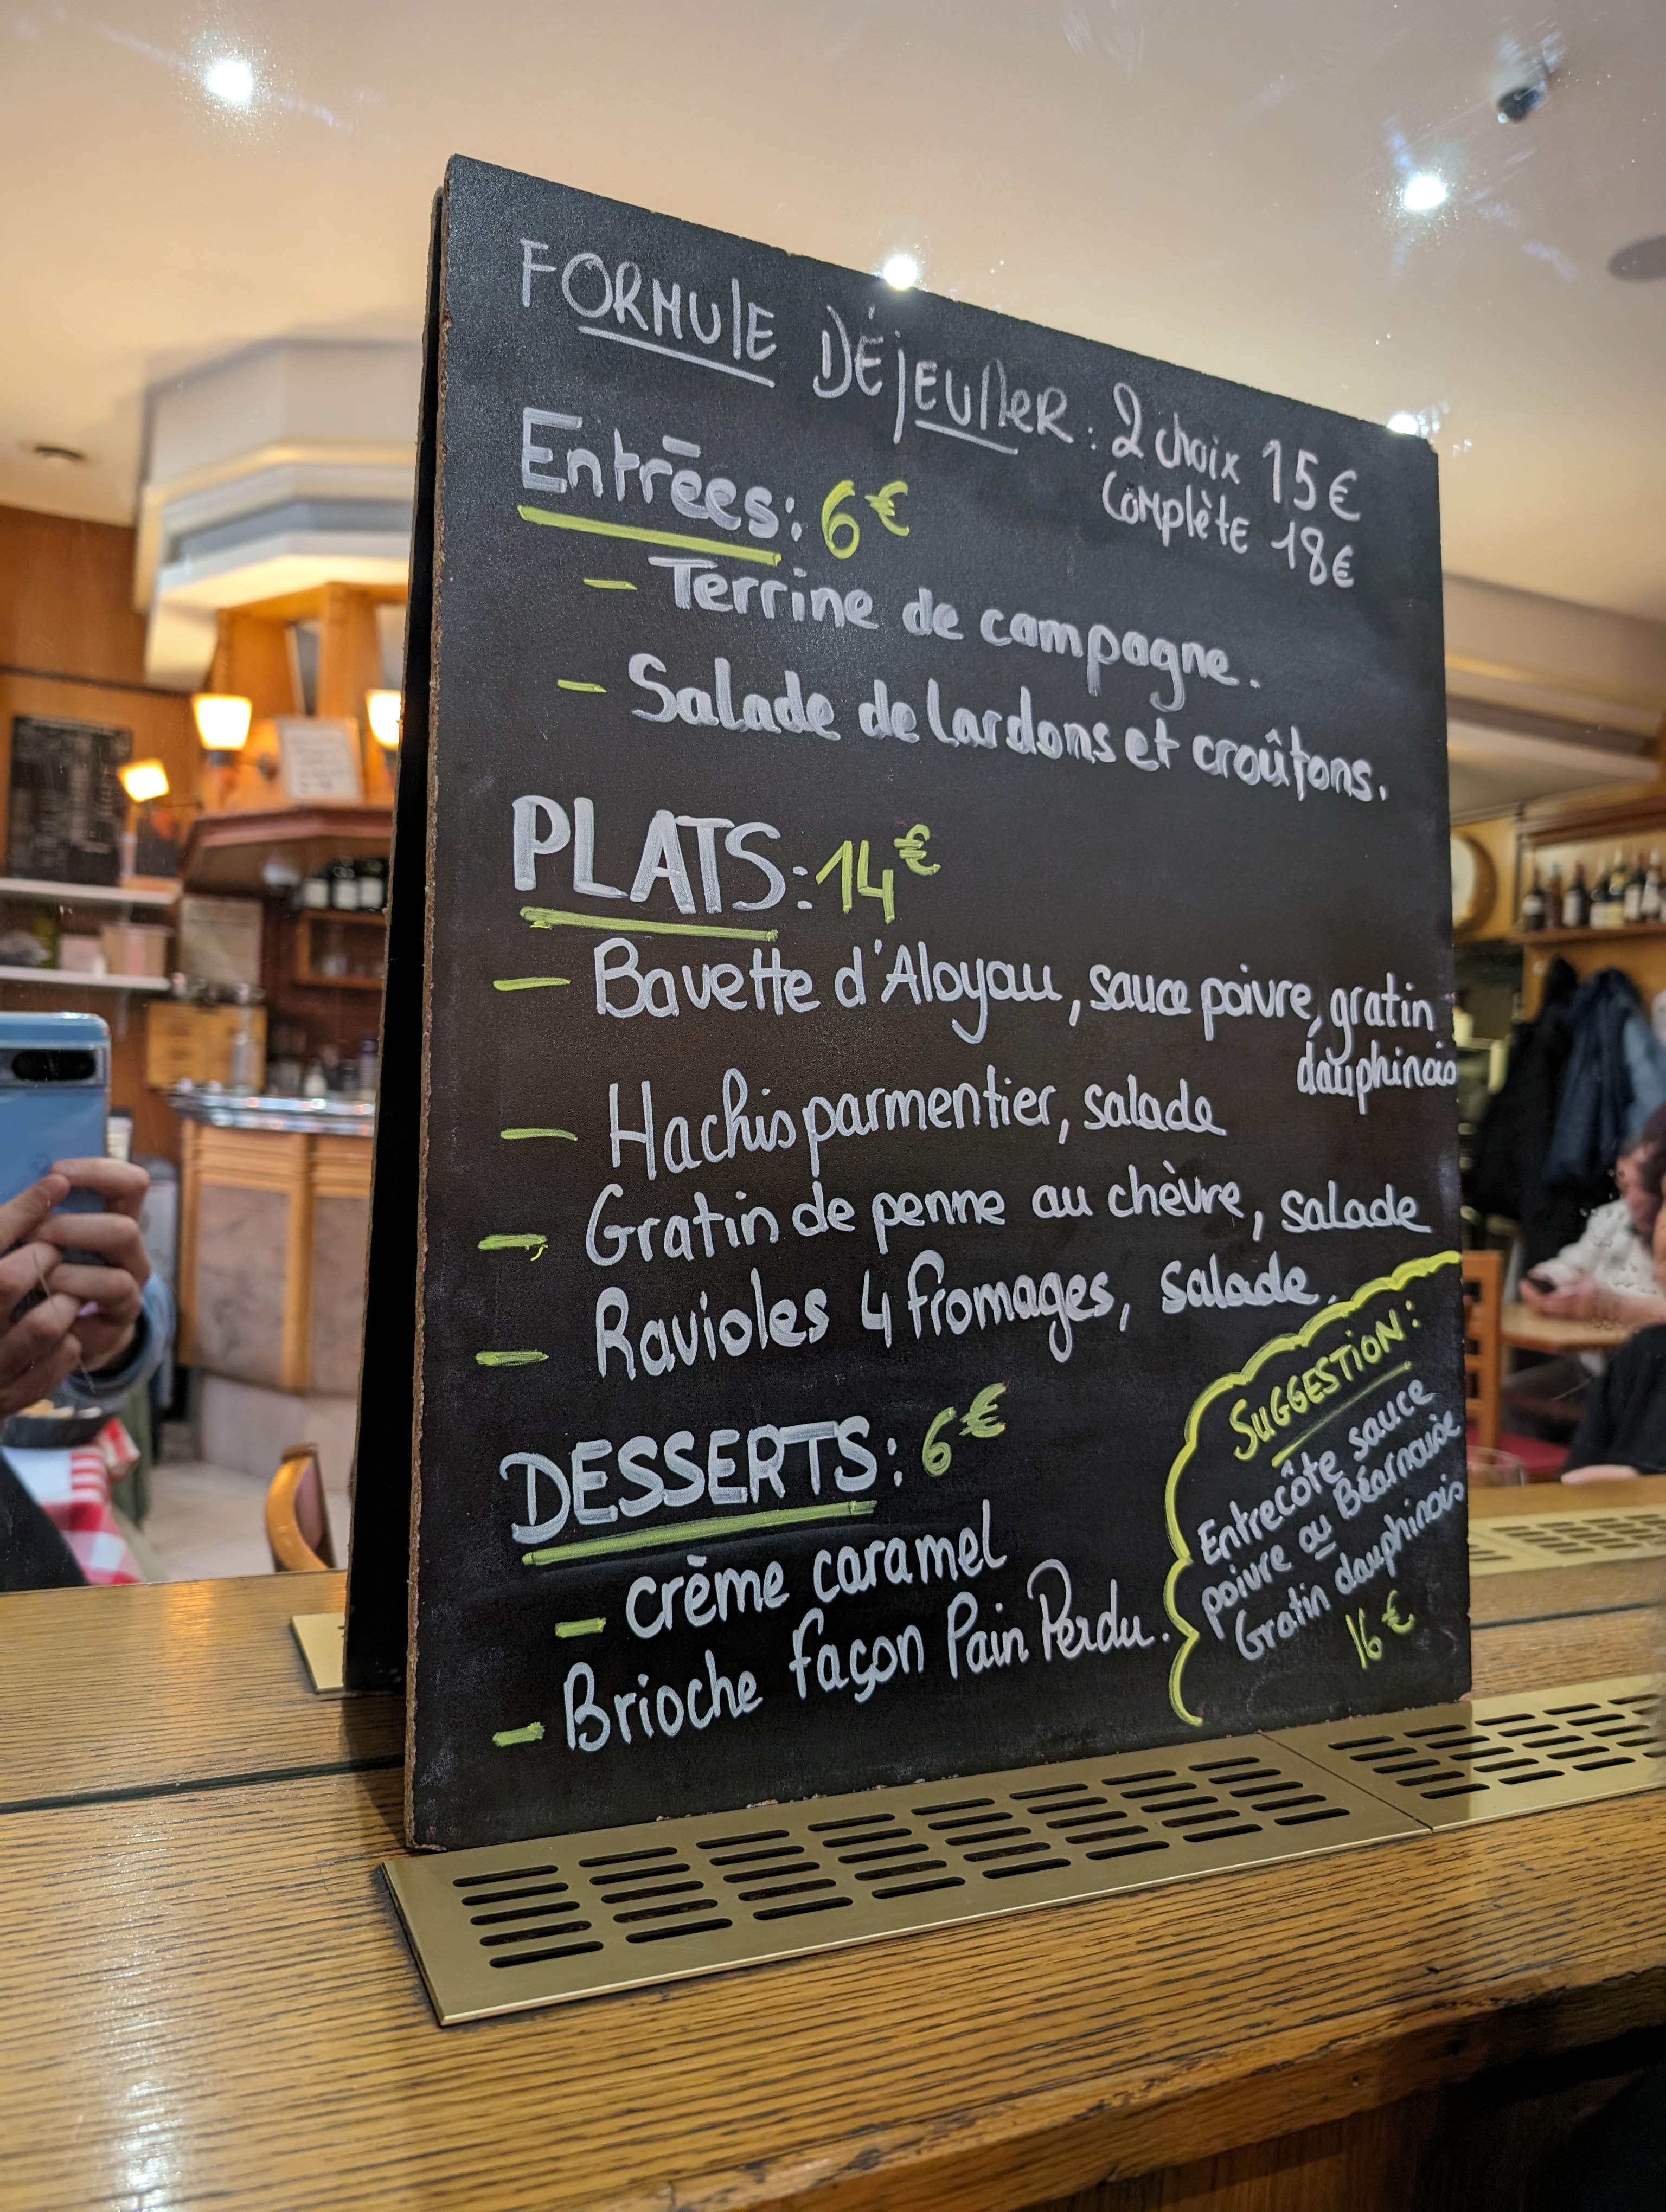 FORMULE DÉJEUNER : 2 choix 15€
complète 18€
Entrées : 6€
- Terrine de campagne.
- Salade de lardons et croûtons.
PLATS : 14€
- Bavette d'Aloyau, sauce poivre, gratin
dauphinois
- Hachis parmentier, salade
- Gratin de penne au chèvre, salade
- Ravioles 4 fromages, salade.
DESSERTS : 6€
- crème caramel
- Brioche façon Pain Perdu.
SUGGESTION :
Entrecôte sauce
poivre ou Béarnaise
Gratin dauphinois
16€